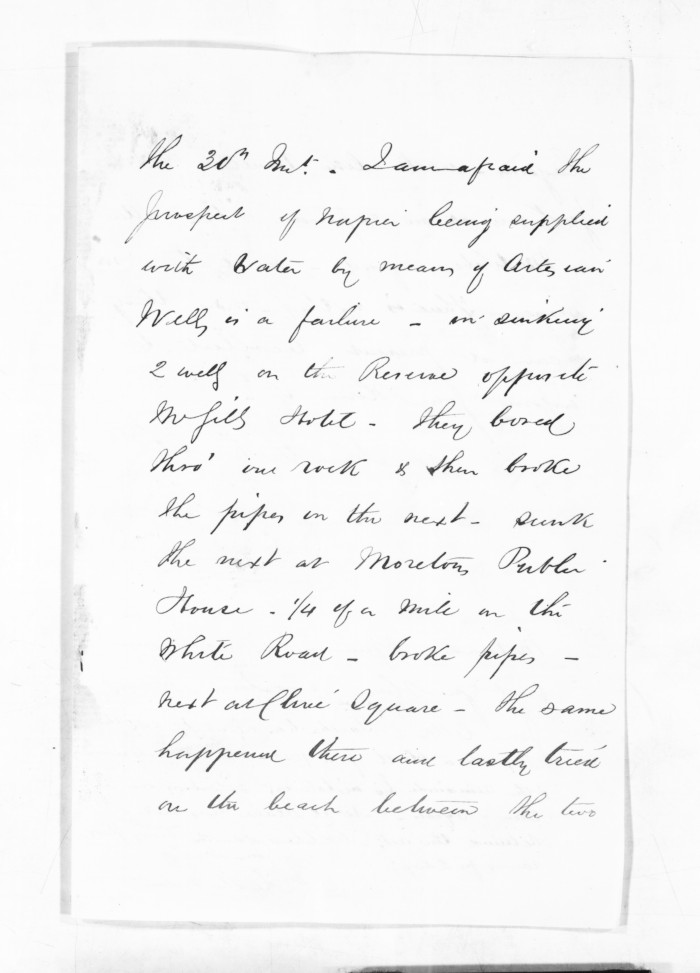 the 30th Inst. - I am afraid the
prospect of Napier being supplied
with Water by means of Artesian
Wells is a failure - in sinking
2 wells on the Reserve opposite
McGills Hotel - they bored
thro' one rock & then broke
the pipes in the next - sunk
the next at Moretons Public
House - 1/4 of a Mile on the
White Road - broke pipes -
next at Clive Square - the same
happened there and lastly tried
on the beach between the two